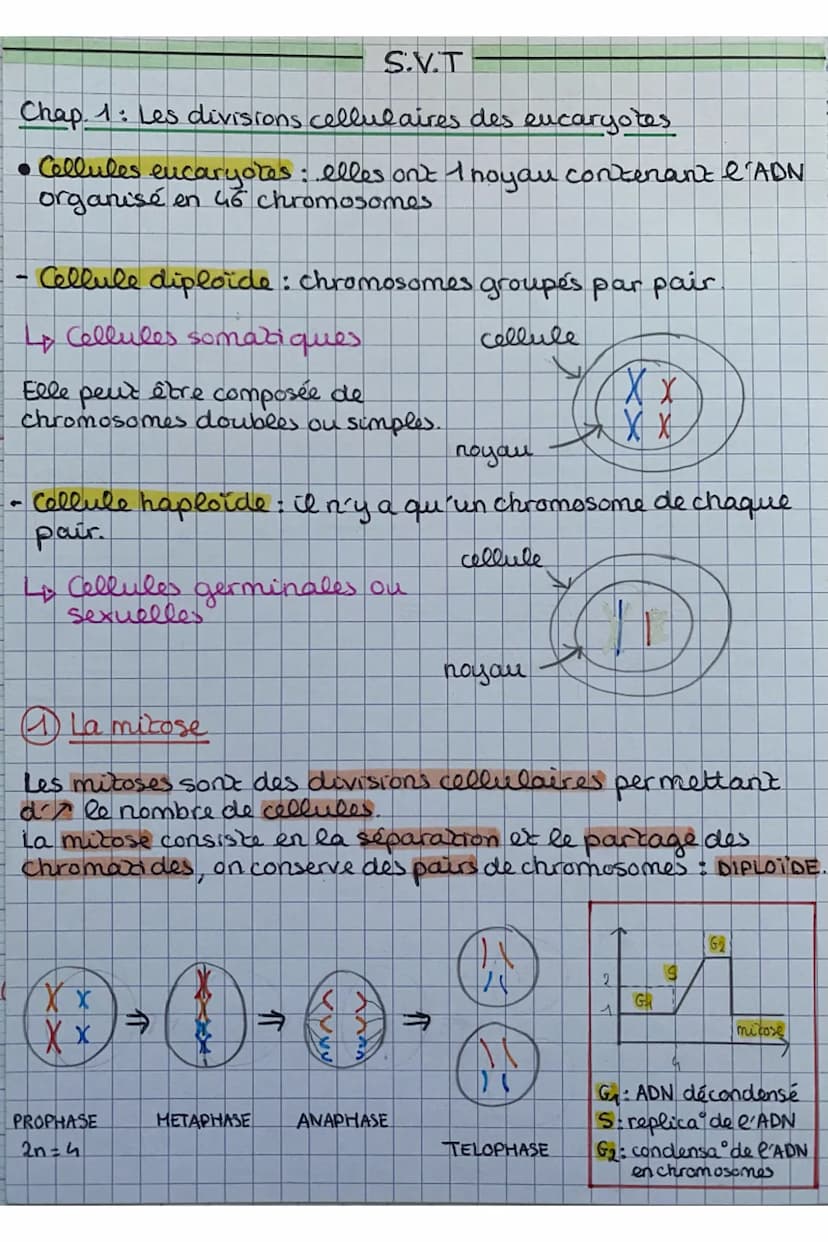 S.V.T
Chap. 1 : Les divisions cellulaires des eucaryotes
• Cellules eucaryotes : elles ont 1 noyau contenant l'ADN
organisé en 46 chromosomes
- Cellule diploïde : chromosomes groupés par pair.
↳ Cellules somatiques
cellule
Elle peut être composée de
chromosomes doubles ou simples.
noyau
- Cellule haploïde : il n'y a qu'un chromosome de chaque
pair.
cellule
↳ Cellules germinales ou
sexuelles
noyau
① La mitose
Les mitoses sont des divisions cellulaires permettant
d'↗ le nombre de cellules.
La mitose consiste en la séparation et le partage des
chromatides, on conserve des pairs de chromosomes : DIPLOÏDE.
G2
2
S
G1
1
mitose
G1 : ADN décondensé
PROPHASE METAPHASE ANAPHASE
S : replica° de l'ADN
2n = 4
TELOPHASE
G2 : condensa° de l'ADN
en chromosomes